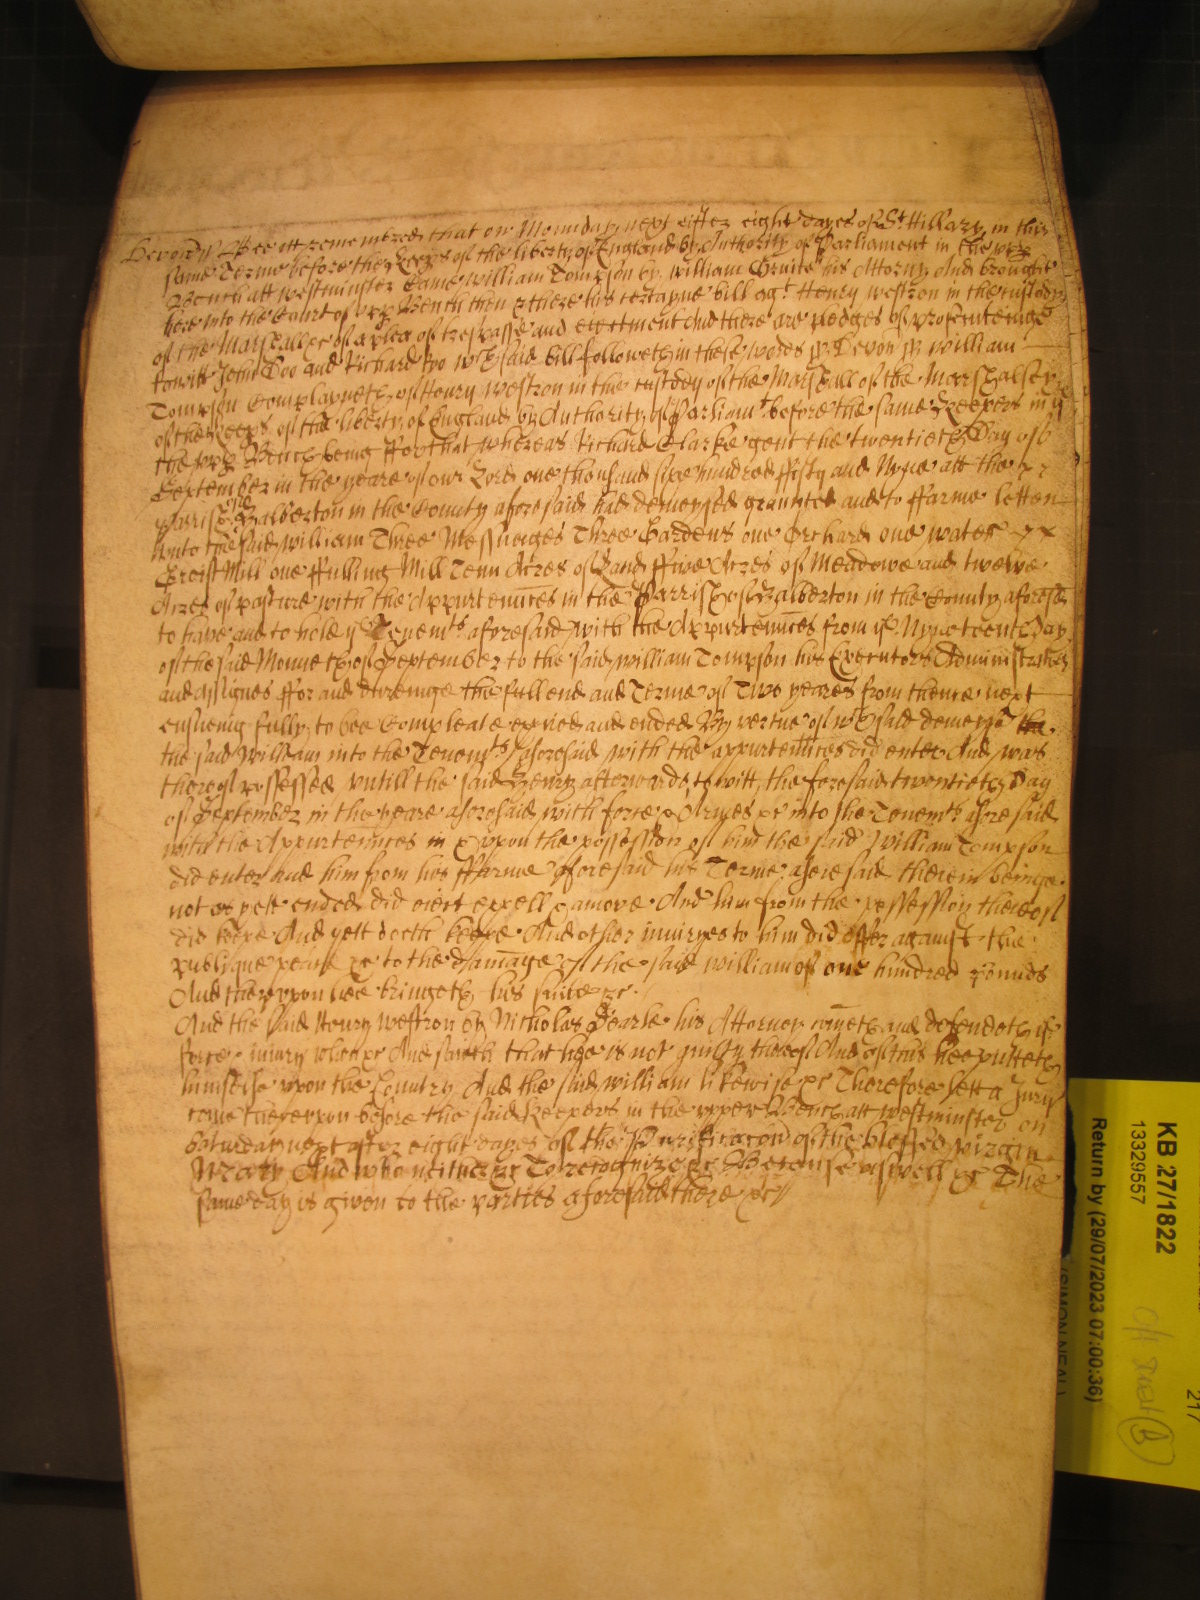 Devon ss Bee itt remembred that on Monnday next after eight dayes of St Hillary in this
same Terme before the Keeps of the liberty of England by Authority of Parliament in the upp
Bench att Westminster Came William Tompson by William his Attorny And brought
here into the Court of upp Bench then & there his certayne bill agt Henry Westron in the custody
of the Marshall &c of a plea of trespasse and eiectment And there are pledges of prosecuteinge
towitt John Doo and Richard Roo wch said bill followeth in these words ss Devon ss William
Tompson Complayneth of Henry Westron in the custody of the Marshall of the Marshalsey
of the Keeps of the liberty of England by Authority of Parliamt before the same Keepers in ye
the upp Bench being ffor that whereas Richard Clarke gent the twentieth Day of
September in the yeare of our Lord one thousand sixe hundred ffifty and Nyne att the
parrish of Halberton in the County aforesaid had demeysed graunted and to ffarme letten
unto the said William Three Messuages Three Gardens one Orchard one water
Greist Mill one ffulling Mill Tenn Acres of Land ffive Acres of Meadowe and twelve
Acres of pasture with the Appurtennces in the Parrish of Halberton in the County aforesd
to have and to hold ye Tenemts aforesaid with the Appurtennces from ye Nyneteenth Day
of the said Moneth of September to the said William Tompson his Executors Administrators
and assignes ffor and dureinge the full end and Terme of Two yeares from thence next
ensueing fully to bee Compleate expired and ended By vertue of wch said demeyse
the said William into the Tenemts aforesaid with the appurtennces did enter And was
thereof possessed untill the said Henry afterwards towitt the foresaid twentieth Day
of September in the yeare aforesaid with force & Armes &c into the Tenemts aforesaid
with the Appurtennces in & uppon the possession of him the said William Tompson
did enter and him from his ffarme aforesaid his Terme aforesaid therein beinge
not as yett ended did eiect expell & amove And him from the possession thereof
did keepe And yett doeth keepe And other iniuryes to him did offer against the
publique peace &c to the damage of the said William of one hundred pounds
And thereuppon hee bringeth his suite &c
And the said Henry Westron by Nicholas Searle his Attorney cometh and defendeth ye
force & iniury when &c And saieth that hee is not guilty thereof And of this hee putteth
himselfe uppon the Country And the said William likewise &c Therefore lett a Jury
come thereuppon before the said Keepers in the upper Bench att Westminster on
Saturday next after eight dayes of the Purificacon of the blessed virgin
Mary And who neither &c To recognize &c Because aswell &c The
same day is given to the parties aforesaid there &c
KB 27/1822
13329557
Return by (29/07/2023 07:00:36)
(SIMON NEAL)
217